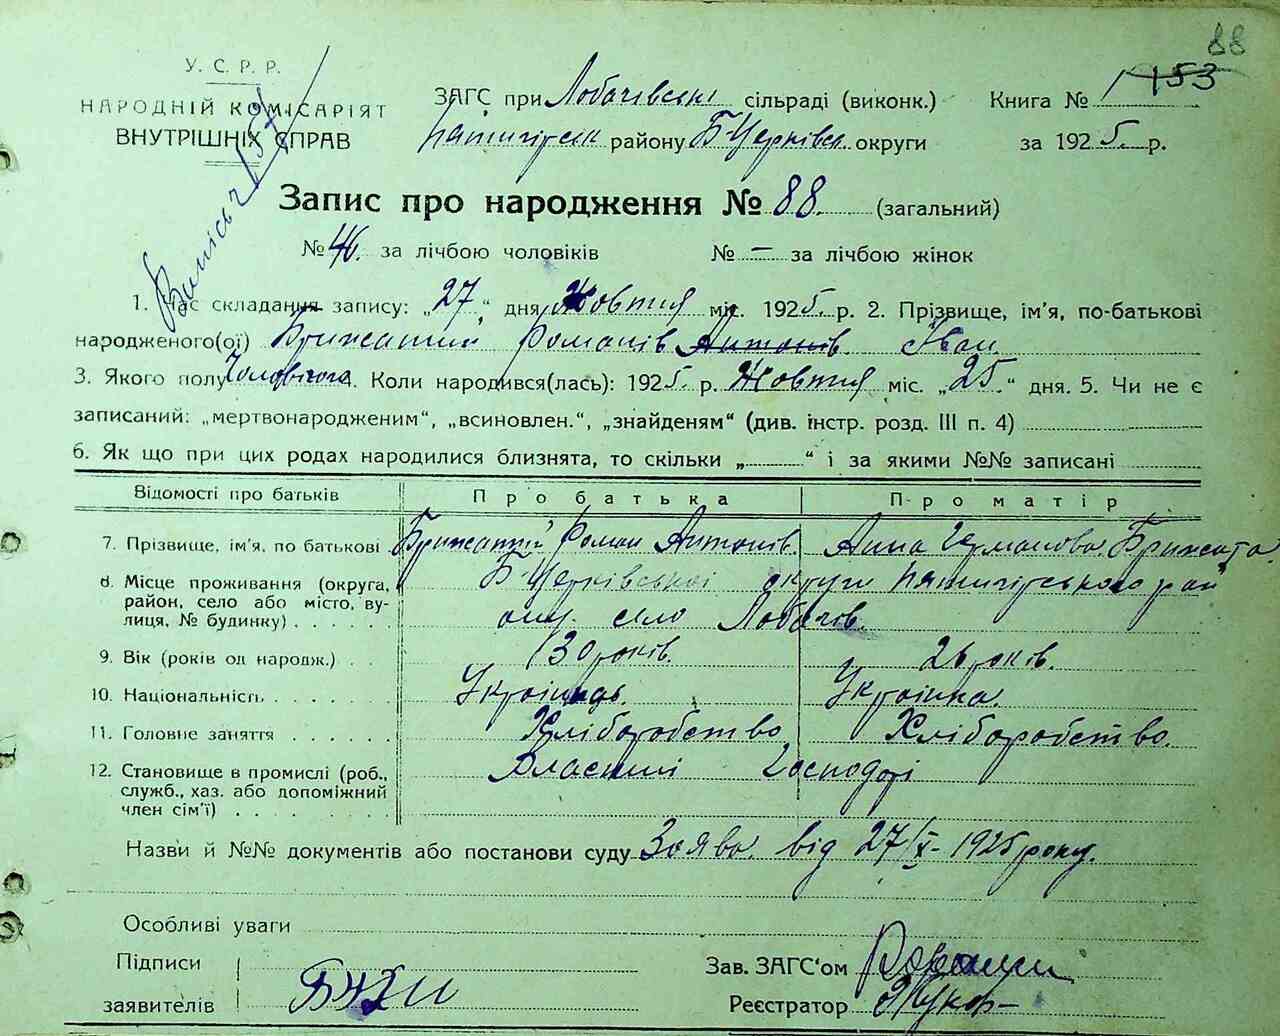 88
У. С. Р. Р.
НАРОДНІЙ КОМІСАРІЯТ
ВНУТРІШНІХ СПРАВ
ЗАГС при Лобачівські сільраді (виконк.) Книга № 153
Пятигірськ району Б-Церківськ. округи за 1925 р.
Запис про народження № 88. (загальний)
№ 46. за лічбою чоловіків № – за лічбою жінок
1. Час складання запису: „27„ дня Жовтня міс. 1925. р. 2. Прізвище, ім'я, по-батькові
народженого(ої) Брижатий Романів Антонів. Іван.
3. Якого полу Чоловічого 4. Коли народився(лась): 1925. р. Жовтня міс. „25.“ дня. 5. Чи не є
записаний: „мертвонародженим“, „всиновлен.“, „знайденям“ (див. інстр. розд. III п. 4)
6. Як що при цих родах народилися близнята, то скільки „ “ і за якими №№ записані
Відомості про батьків Про батька Про матір
7. Прізвище, ім'я, по батькові Брижатий Роман Антонів. Анна Германова Брижата
8. Місце проживання (округа, Б-Церківської округи Пятигірського рай
район, село або місто, ву- ону. село Лобачів.
лиця, № будинку)
9. Вік (років од народж.) 30 років. 26 років.
10. Національність Українець. Українка.
11. Головне заняття Хліборобство Хліборобство.
12. Становище в промислі (роб., Власнині Господарі
служб., хаз. або допоміжний
член сім'ї)
Назви й №№ документів або постанови суду Заява. від 27/X - 1925 року.
Особливі уваги
Підписи
заявителів
Зав. ЗАГС'ом
Реєстратор